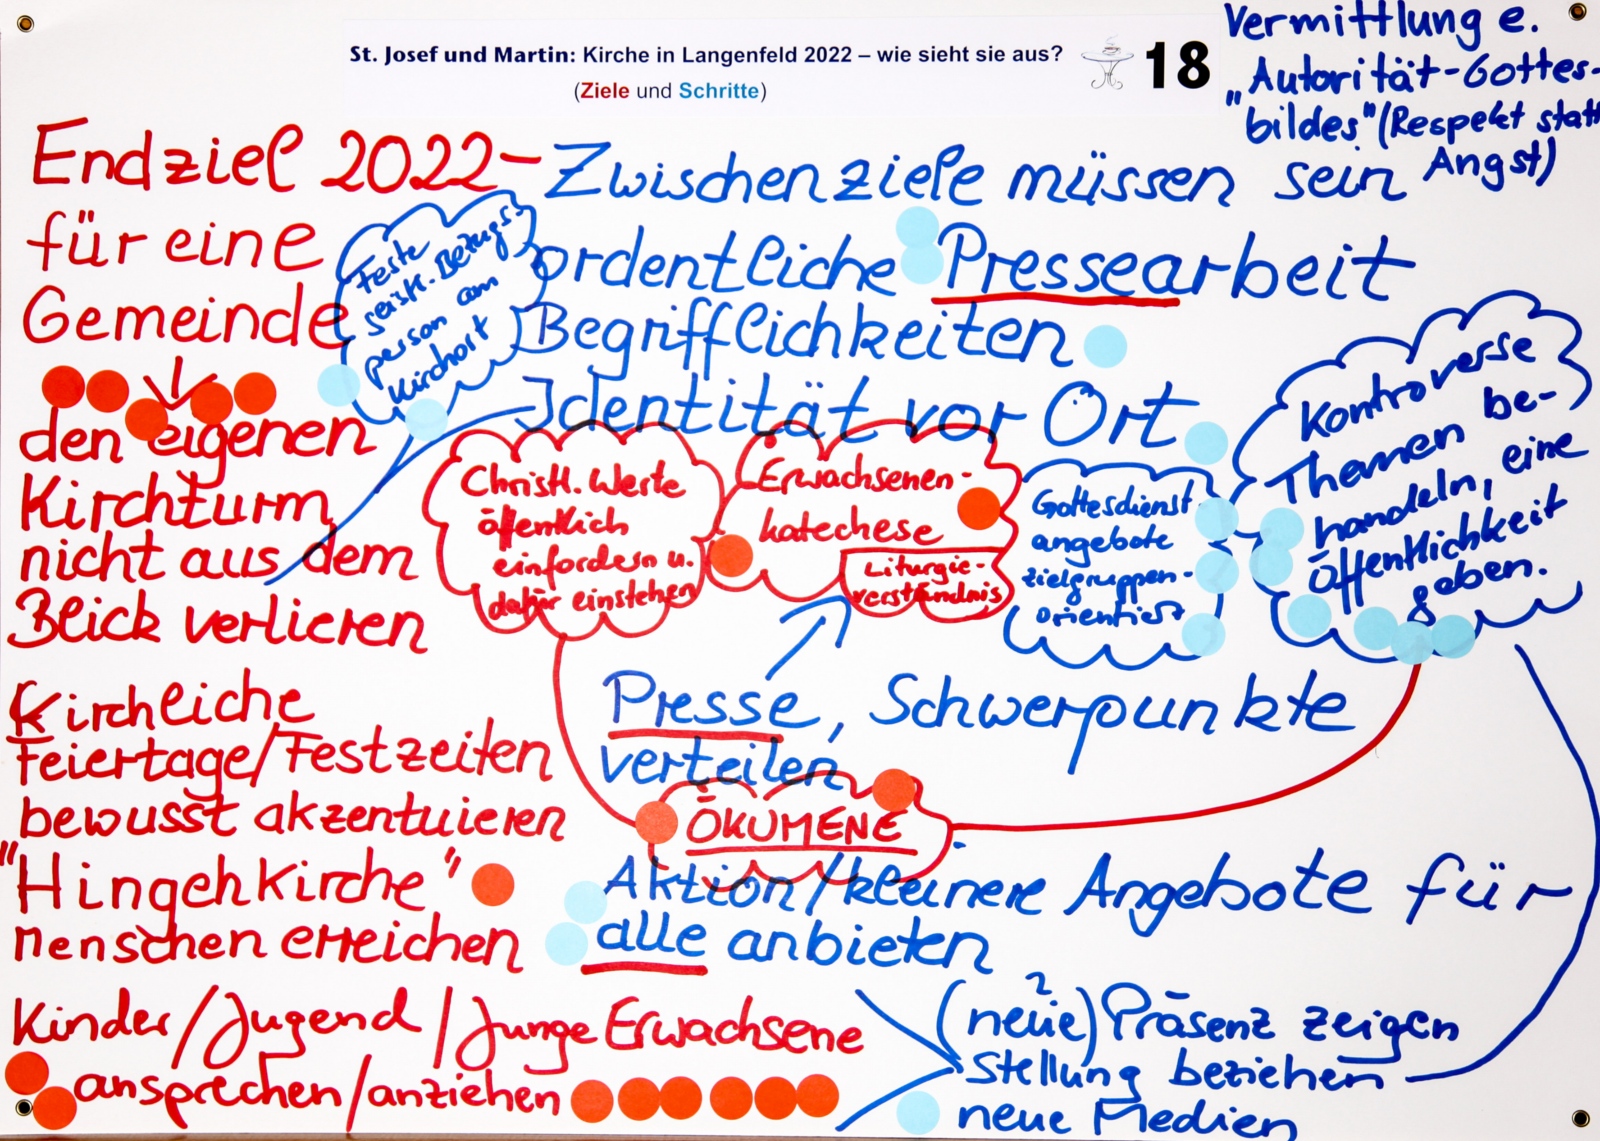 St. Josef und Martin: Kirche in Langenfeld 2022 – wie sieht sie aus?
(Ziele und Schritte)
18
Vermittlung e.
"Autorität-Gottes-
bildes" (Respekt statt
Angst)
Endziel 2022-
für eine
Gemeinde
den eigenen
Kirchturm
nicht aus dem
Blick verlieren
Kirchliche
Feiertage/Festzeiten
bewusst akzentuieren
"Hingehkirche"
Menschen erreichen
Kinder/Jugend/junge Erwachsene
ansprechen/anziehen
Feste
geistl. Bezugs-
person am
Kirchort
Zwischenziele müssen sein
ordentliche Pressearbeit
Begrifflichkeiten
Identität vor Ort
Christl. Werte
öffentlich
einfordern u.
dafür einstehen
Erwachsenen-
katechese
Liturgie-
verständnis
Gottesdienst
angebote
zielgruppen-
orientiert
Kontroverse
Themen be-
handeln, eine
Öffentlichkeit
geben.
Presse, Schwerpunkte
verteilen
ÖKUMENE
Aktion/kleinere Angebote für
alle anbieten
(neue) Präsenz zeigen
Stellung beziehen
neue Medien